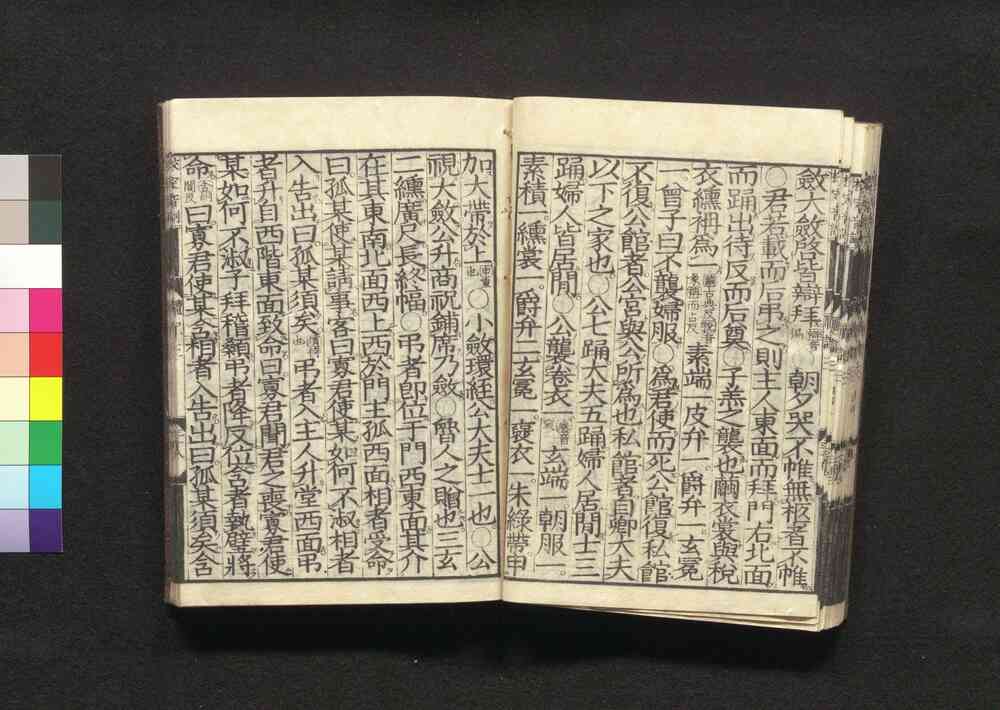 斂大斂啓皆辯拜 朝夕哭不帷無柩者不帷
○君若載而后弔之則主人東面而拜門右北面
而踊出待反而后奠○子羔之襲也繭衣裳與稅
衣纁袡爲一 素端一皮弁一爵弁一玄冕
一曾子曰不襲婦服○爲君使而死公館復私館
不復公館者公宮與公所爲也私館者自卿大夫
以下之家也○公七踊大夫五踊婦人居間士三
踊婦人皆居間○公襲卷衣一 玄端一朝服一
素積一纁裳一爵弁二玄冕一褒衣一朱綠帶申
加大帶於上 ○小斂環絰公大夫士一也○公
視大斂公升商祝鋪席乃斂○魯人之贈也三玄
二纁廣尺長終幅○弔者即位于門西東面其介
在其東南北面西上西於門主孤西面相者受命
曰孤某使某請事客曰寡君使某如何不淑相者
入告出曰孤某須矣 弔者入主人升堂西面弔
者升自西階東面致命曰寡君聞君之喪寡君使
某如何不淑子拜稽顙弔者降反位含者執璧將
命 曰寡君使某含相者入告出曰孤某須矣含